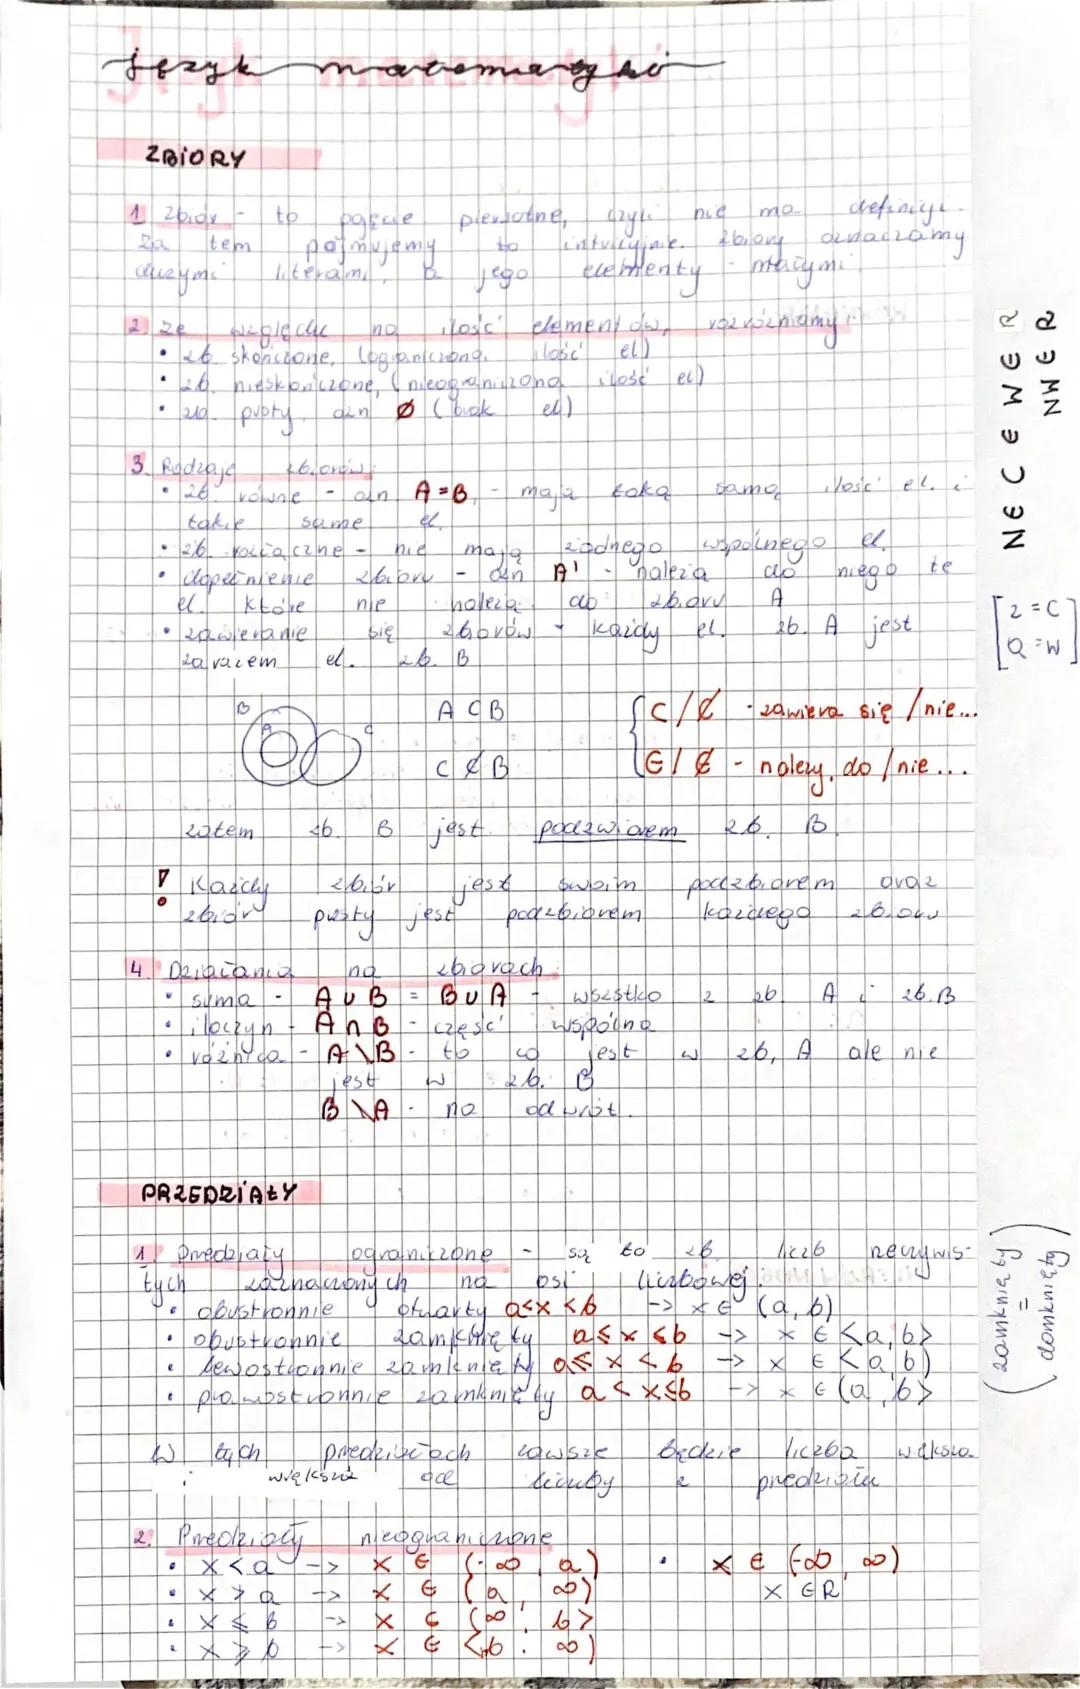 język matematyki
ZBIORY
1 Zbiór - to pojęcie pierwotne, czyli nie ma definicji.
Za tem pojmujemy to intuicyjnie. Zbiory oznaczamy
dużymi literami, a jego elementy - małymi.
2. Ze względu na ilość elementów, rozróżniamy:
• zb. skończone, (ograniczona ilość el)
• zb. nieskończone, (nieograniczona ilość el)
• zb. pusty, ozn ∅ (brak el)
3. Rodzaje zbiorów:
• zb. równe - ozn A=B, - mają taką samą ilość el. i
takie same el.
• zb. rozłączne - nie mają żadnego wspólnego el.
• dopełnienie zbioru - ozn A' - należą do niego te
el. które nie należą do zbioru A
• zawieranie się zbiorów - każdy el. zb. A jest
zarazem el. zb. B
B A C
A ⊂ B
C ⊄ B
⊂/⊄ - zawiera się /nie...
∈/∉ - należy do /nie...
zatem zb. B jest podzbiorem zb. B.
! Każdy zbiór jest swoim podzbiorem oraz
zbiór pusty jest podzbiorem każdego zbioru
4. Działania na zbiorach:
• suma - A ∪ B = B ∪ A - wszstko z zb. A i zb. B
• iloczyn - A ∩ B - część wspólna
• różnica - A \ B - to co jest w zb, A ale nie
jest w zb. B
B \ A - na odwrót.
PRZEDZIAŁY
1. Przedziały ograniczone - są to zb. liczb rzeczywis-
tych zaznaczonych na osi liczbowej.
• obustronnie otwarty a<x<b -> x ∈ (a, b)
• obustronnie zamknięty a≤x≤b -> x ∈ <a, b>
• lewostronnie zamknięty a≤x<b -> x ∈ <a, b)
• prawostronnie zamknięty a<x≤b -> x ∈ (a, b>
W tych przedziałach zawsze będzie liczba większa
i większa od liczby z przedziału
2. Przedziały nieograniczone
• x<a -> x ∈ (-∞, a)
• x>a -> x ∈ (a, ∞)
• x≤b -> x ∈ (∞, b>
• x≥b -> x ∈ <b, ∞)
• x ∈ (-∞, ∞)
x ∈ R
NECEWER
NWER
[Z = C
Q = W]
(zamknięty
=
domknięty)